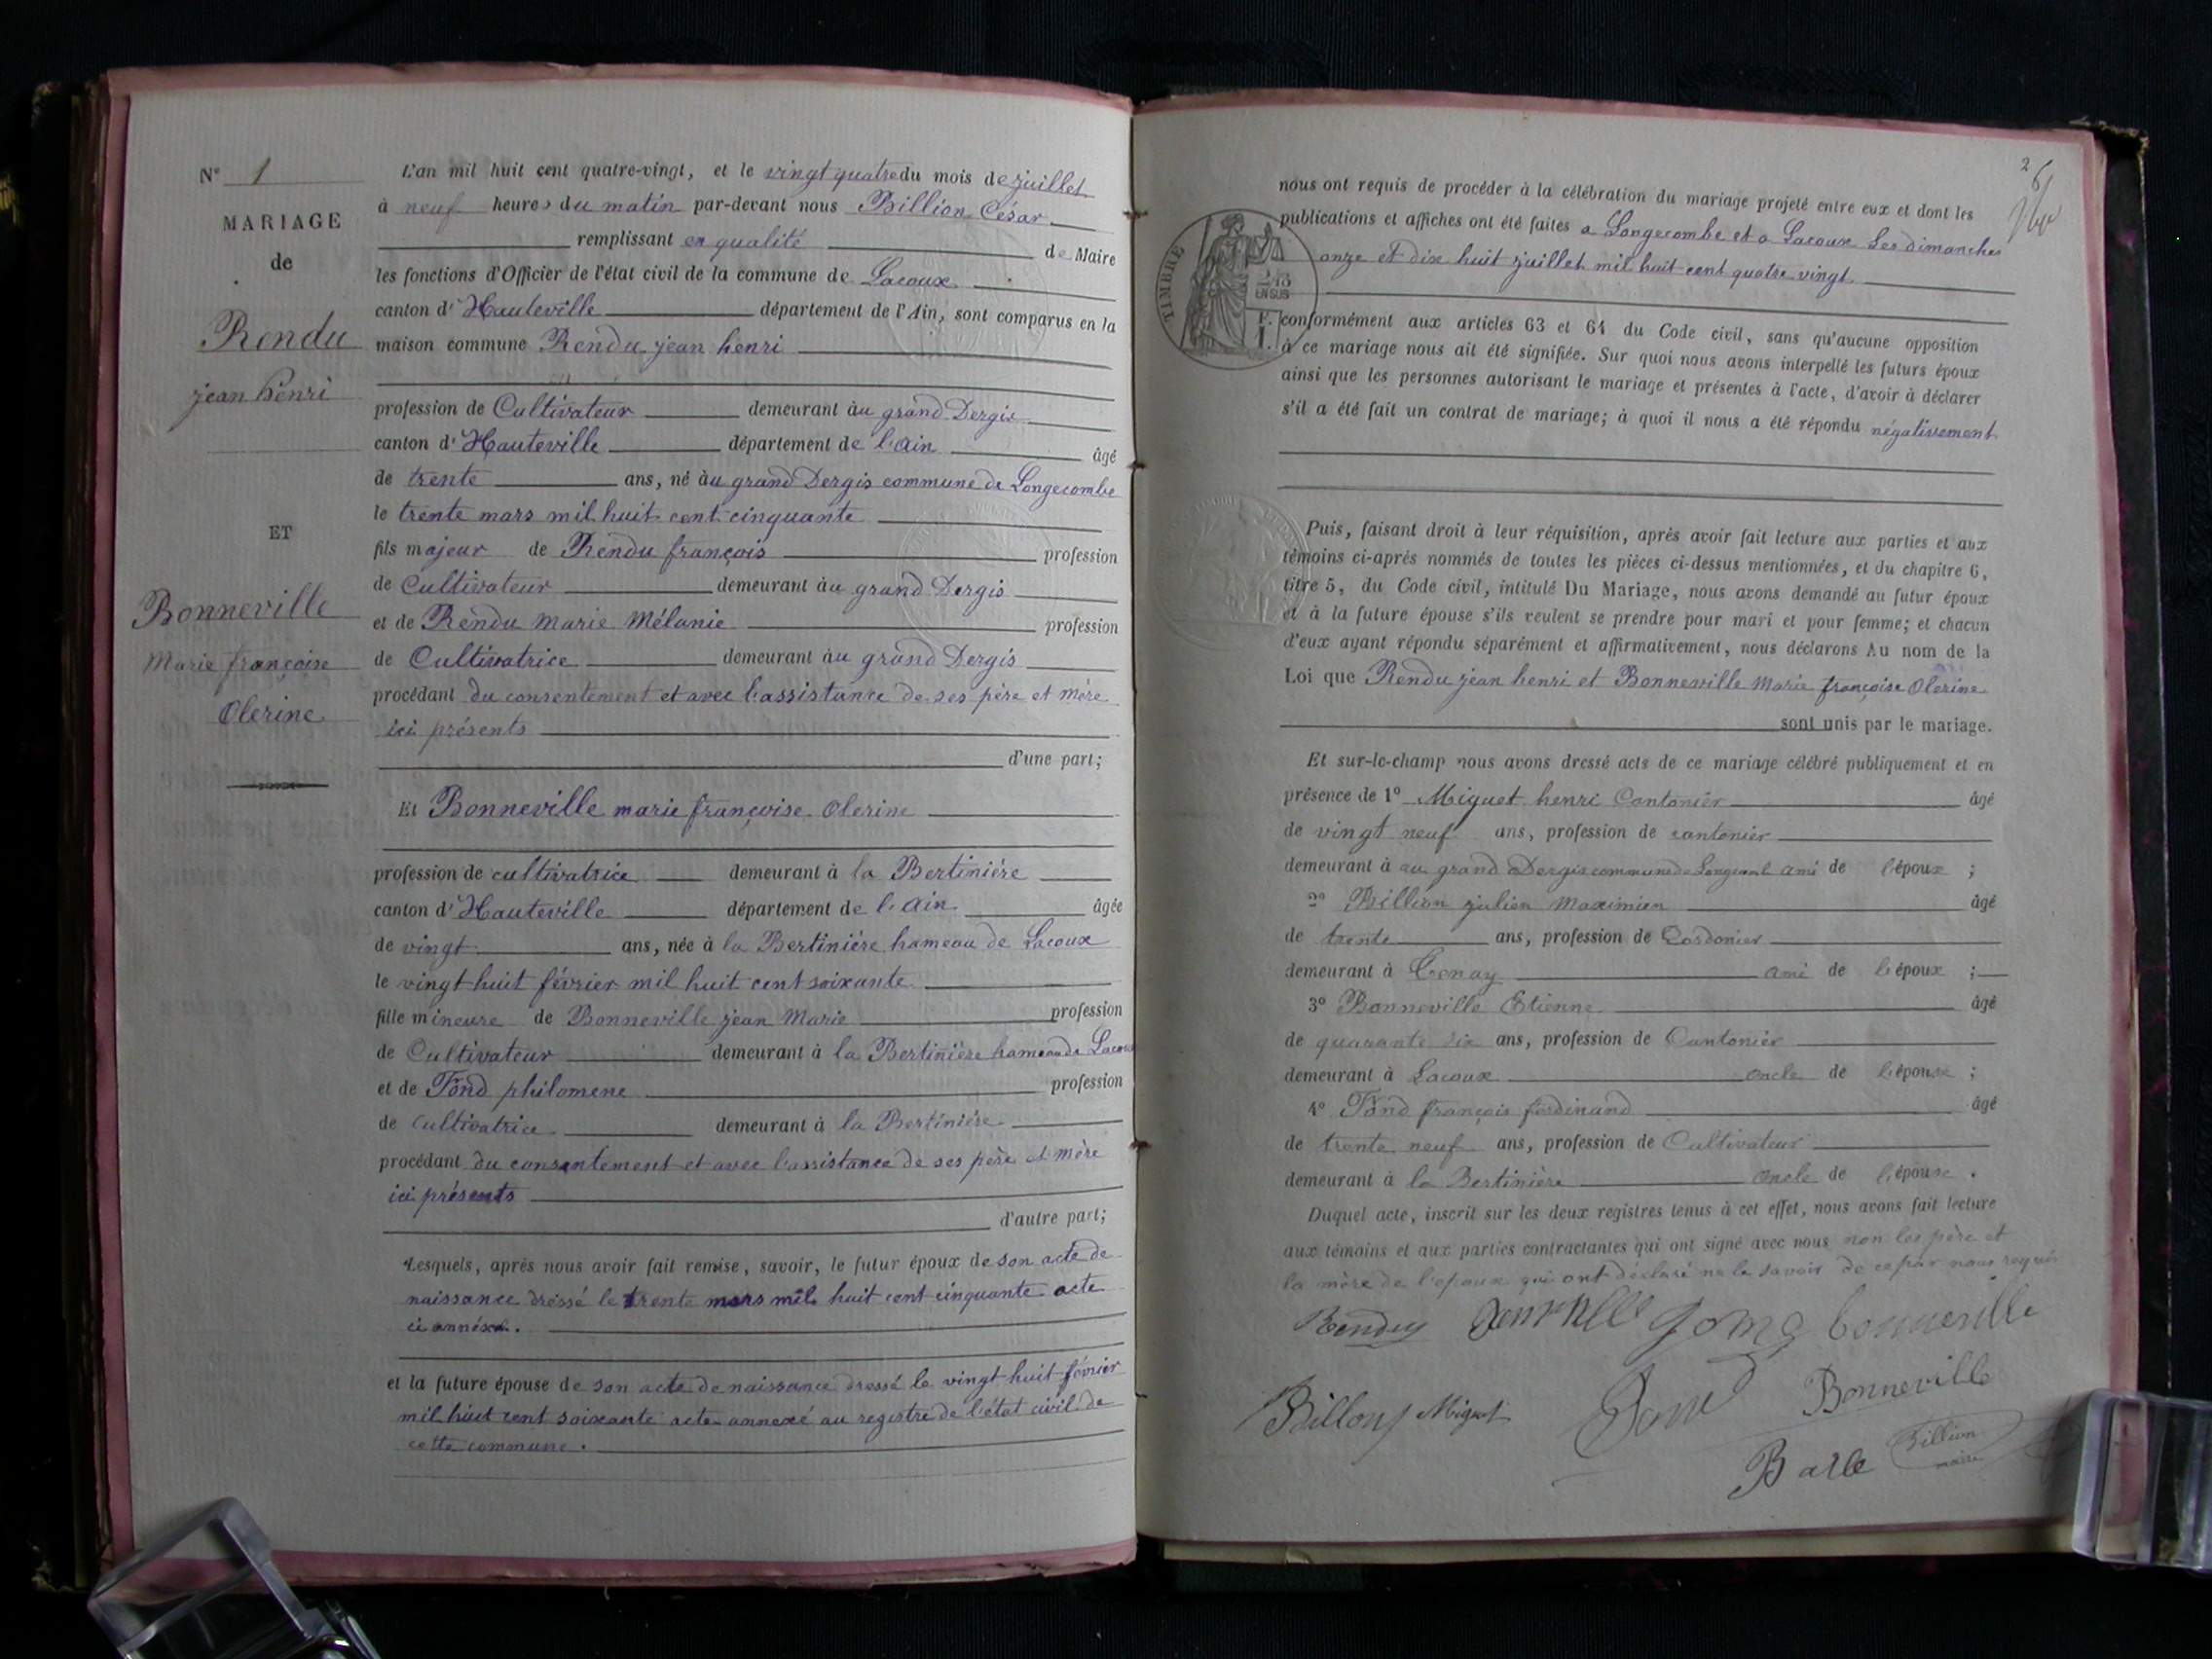 N° 1
MARIAGE
de
Rendu
jean henri
ET
Bonneville
Marie françoise
Olerine
L'an mil huit cent quatre-vingt, et le vingt quatre du mois de juillet
à neuf heures du matin par-devant nous Billion César
remplissant en qualité de Maire
les fonctions d'Officier de l'état civil de la commune de Lacoux
canton d'Hauteville département de l'Ain, sont comparus en la
maison commune Rendu jean henri
profession de Cultivateur demeurant au grand Dergis
canton d'Hauteville département de l'ain âgé
de trente ans, né au grand Dergis commune de Longecombe
le trente mars mil huit cent cinquante
fils majeur de Rendu françois profession
de Cultivateur demeurant au grand Dergis
et de Rendu Marie Mélanie profession
de Cultivatrice demeurant au grand Dergis
procédant du consentement et avec l'assistance de ses père et mère
ici présents
d'une part;
Et Bonneville marie françoise Olerine
profession de cultivatrice demeurant à la Bertinière
canton d'Hauteville département de l'ain âgée
de vingt ans, née à la Bertinière hameau de Lacoux
le vingt-huit février mil huit cent soixante
fille mineure de Bonneville jean Marie profession
de Cultivateur demeurant à la Bertinière hameau de Lacoux
et de Fond philomene profession
de Cultivatrice demeurant à la Bertinière
procédant du consentement et avec l'assistance de ses père et mère
ici présents
d'autre part;
Lesquels, après nous avoir fait remise, savoir, le futur époux de son acte de
naissance dressé le trente mars mil huit cent cinquante acte
ci annéxé.
et la future épouse de son acte de naissance dressé le vingt-huit février
mil huit cent soixante acte annexé au registre de l'état civil de
cette commune.
26
TIMBRE
2/10
EN SUS
nous ont requis de procéder à la célébration du mariage projeté entre eux et dont les
publications et affiches ont été faites a Longecombe et a Lacoux les dimanches
onze et dix huit juillet mil huit cent quatre vingt
conformément aux articles 63 et 64 du Code civil, sans qu'aucune opposition
à ce mariage nous ait été signifiée. Sur quoi nous avons interpellé les futurs époux
ainsi que les personnes autorisant le mariage et présentes à l'acte, d'avoir à déclarer
s'il a été fait un contrat de mariage; à quoi il nous a été répondu négativement
Puis, faisant droit à leur réquisition, après avoir fait lecture aux parties et aux
témoins ci-après nommés de toutes les pièces ci-dessus mentionnées, et du chapitre 6,
titre 5, du Code civil, intitulé Du Mariage, nous avons demandé au futur époux
et à la future épouse s'ils veulent se prendre pour mari et pour femme; et chacun
d'eux ayant répondu séparément et affirmativement, nous déclarons Au nom de la
Loi que Rendu jean henri et Bonneville Marie françoise Olerine
sont unis par le mariage.
Et sur-le-champ nous avons dressé acts de ce mariage célébré publiquement et en
présence de 1° Miguet henri Cantonier âgé
de vingt neuf ans, profession de cantonier
demeurant à au grand Dergis commune de ami de l'époux ;
2° Billion julien Maximien âgé
de trente ans, profession de Cordonier
demeurant à Tenay ami de l'époux ;
3° Bonneville Etienne âgé
de quarante six ans, profession de Cantonier
demeurant à Lacoux oncle de l'épouse ;
4° Fond françois ferdinand âgé
de trente neuf ans, profession de Cultivateur
demeurant à la Bertinière oncle de l'épouse.
Duquel acte, inscrit sur les deux registres tenus à cet effet, nous avons fait lecture
aux témoins et aux parties contractantes qui ont signé avec nous non les père et
la mère de l'époux qui ont déclaré ne le savoir de ce par nous requis
Rendu bonneville
Billion Miguet Bonneville
Billion
maire